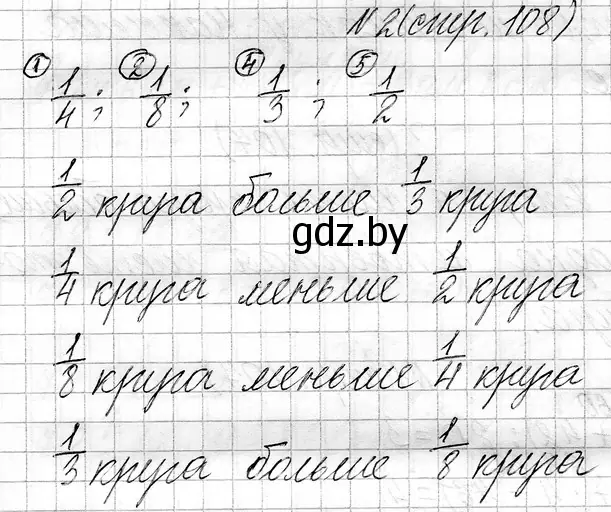 №2 (стр. 108)
① 1/4; ② 1/8; ④ 1/3; ⑤ 1/2
1/2 круга больше 1/3 круга
gdz.by
1/4 круга меньше 1/2 круга
1/8 круга меньше 1/4 круга
1/3 круга больше 1/8 круга